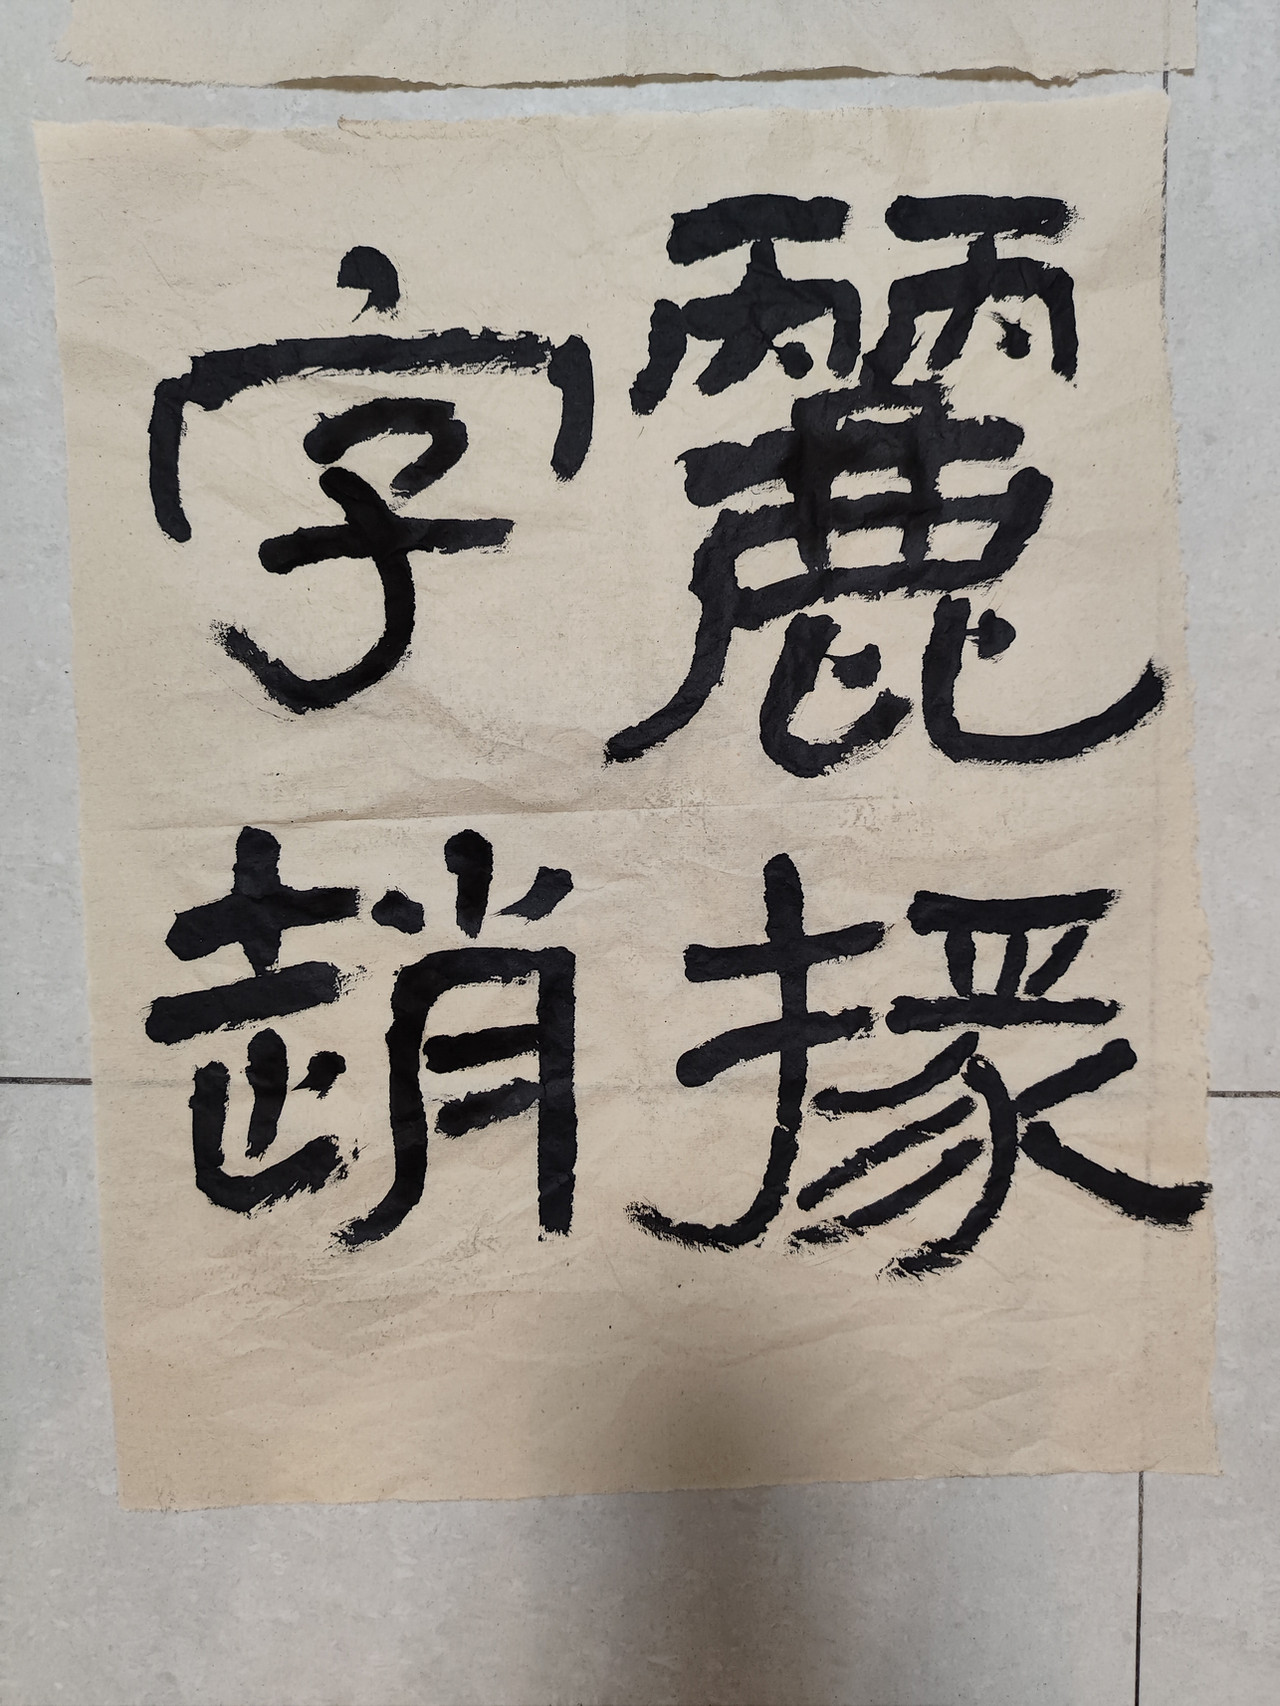 麗掾
字趙